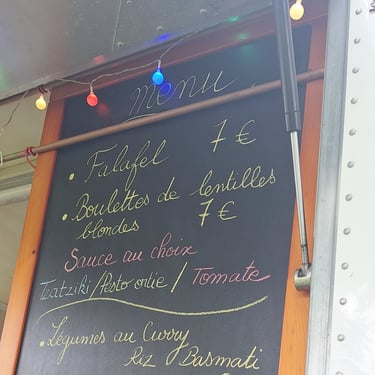 menu
• Falafel 7€
• Boulettes de lentilles
blondes 7€
Sauce au choix
Tzatziki / Pesto ortie / Tomate
• Légumes au Curry
Riz Basmati